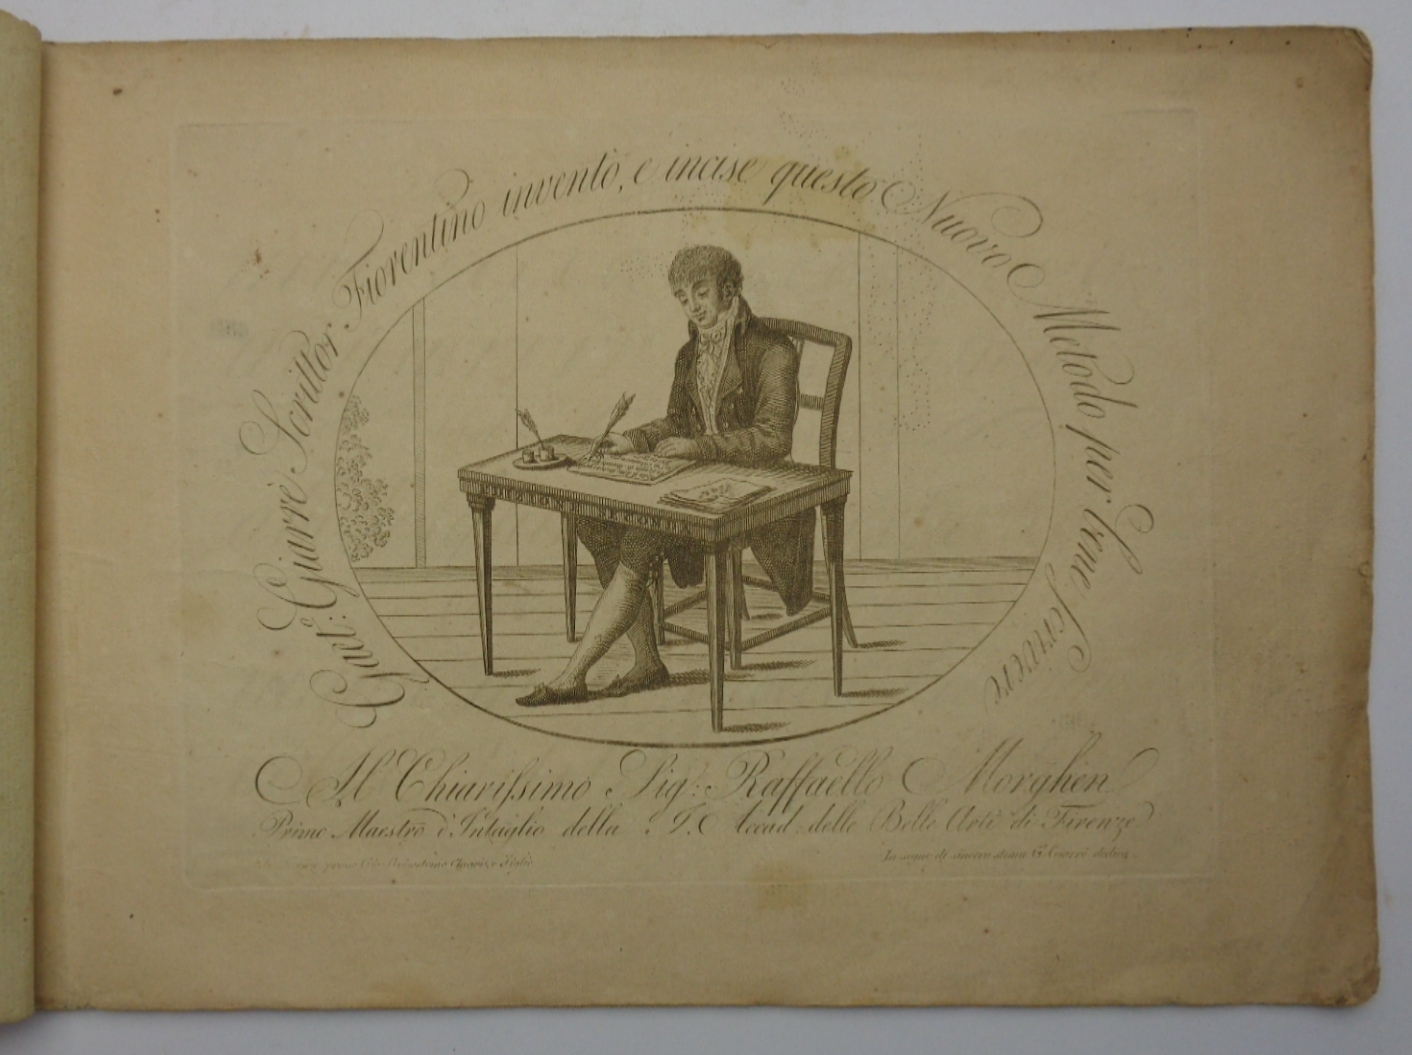 Gaet.º Giarrè Scrittor Fiorentino inventò, e incise questo Nuovo Metodo per bene Scrivere
Al Chiarissimo Sig.r Raffaello Morghen
Primo Maestro d'Intaglio della I. Accad. delle Belle Arti di Firenze
presso Gio. Chiari, e Figli
In segno di sincera stima G. Giarrè dedica